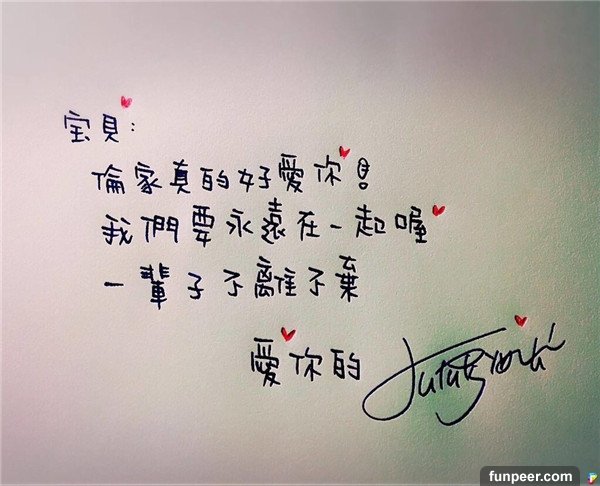 宝貝：
倫家真的好愛你！
我們要永遠在一起喔
一輩子不離不棄
愛你的
funpeer.com